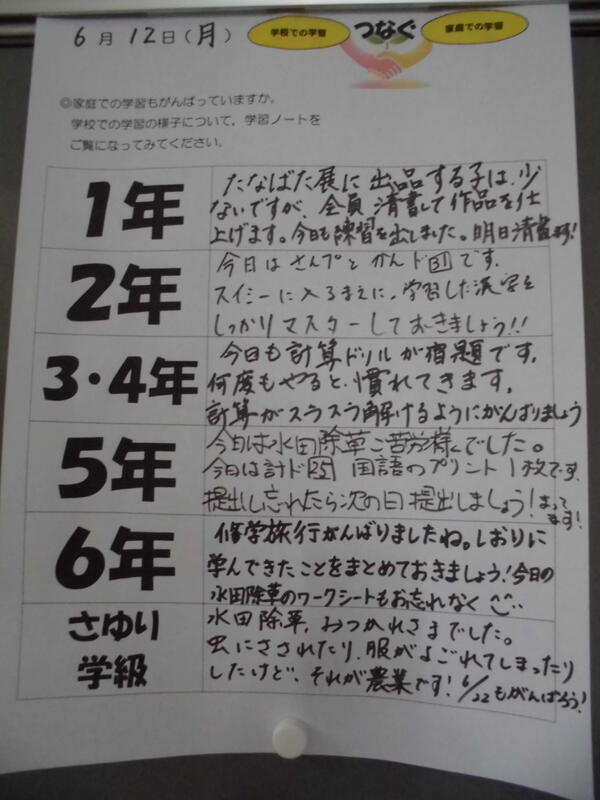 6月12日(月)
学校での学習 つなぐ 家庭での学習
◎家庭での学習もがんばっていますか。
学校での学習の様子について、学習ノートを
ご覧になってみてください。
1年
たなばた展に出品する子は、少
ないですが、全員清書して作品を仕
上げます。今日も練習を出しました。明日清書です!
2年
今日はさんプとかんド51です。
スイミーに入るまえに、学習した漢字を
しっかりマスターしておきましょう!!
3・4年
今日も計算ドリルが宿題です。
何度もやると、慣れてきます。
計算がスラスラ解けるようにがんばりましょう
5年
今日は水田除草ご苦労様でした。
今日は計ド25 国語のプリント1枚です。
提出し忘れたら次の日提出しましょう!まって
ます!
6年
修学旅行がんばりましたね。しおりに
学んできたことをまとめておきましょう!今日の
水田除草のワークシートもお忘れなく
さゆり
学級
水田除草、おつかれさまでした。
虫にさされたり、服がよごれてしまったり
したけど、それが農業です!6/22もがんばろう!